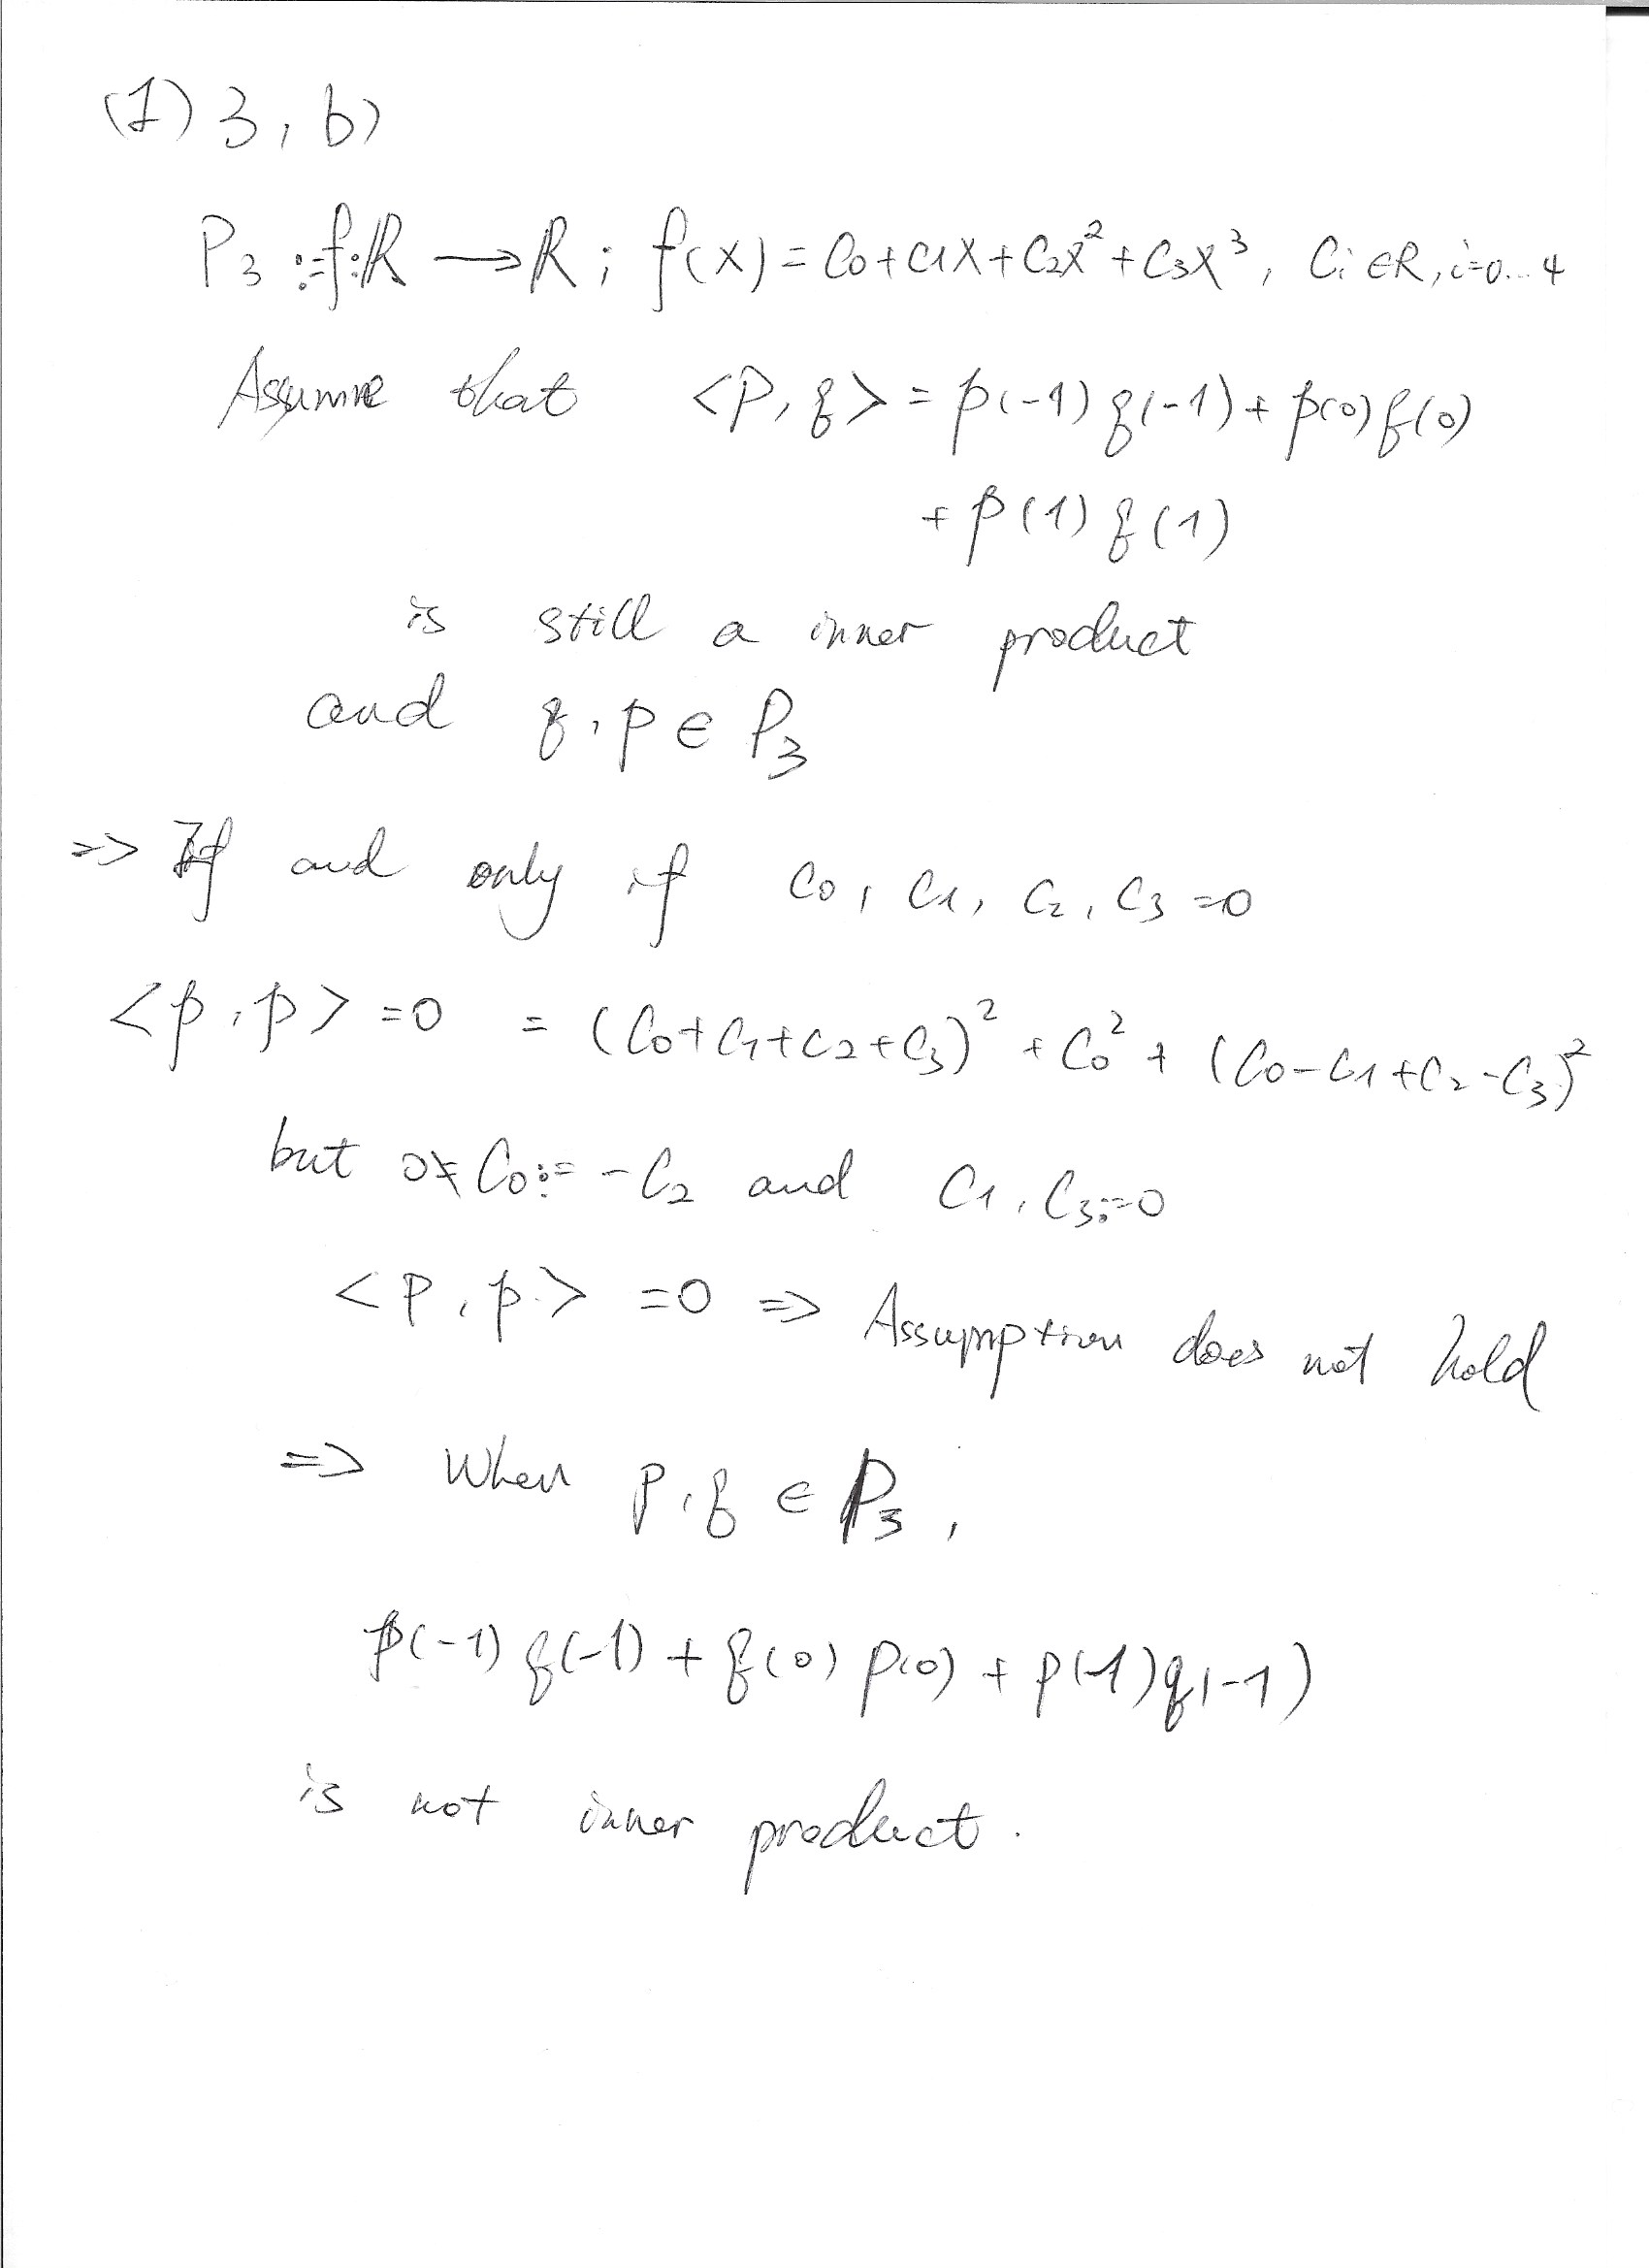 (1) 3, b)
P₃ := f: ℝ → ℝ ; f(x) = C₀ + C₁x + C₂x² + C₃x³, Cᵢ ∈ R, i=0...4
Assume that <P, q> = p(-1) q(-1) + p(0) q(0)
+ p(1) q(1)
is still a inner product
and q, p ∈ P₃
=> If and only if C₀, C₁, C₂, C₃ = 0
<p, p> = 0 = (C₀+C₁+C₂+C₃)² + C₀² + (C₀-C₁+C₂-C₃)²
but 0 ≠ C₀ := -C₂ and C₁, C₃ := 0
<P, p> = 0 => Assumption does not hold
=> When P, q ∈ P₃,
p(-1) q(-1) + q(0) p(0) + p(-1) q(-1)
is not inner product.